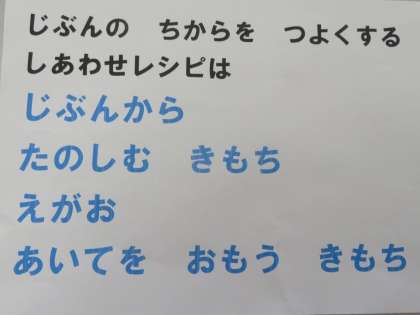 じぶんの　ちからを　つよくする
しあわせレシピは
じぶんから
たのしむ　きもち
えがお
あいてを　おもう　きもち